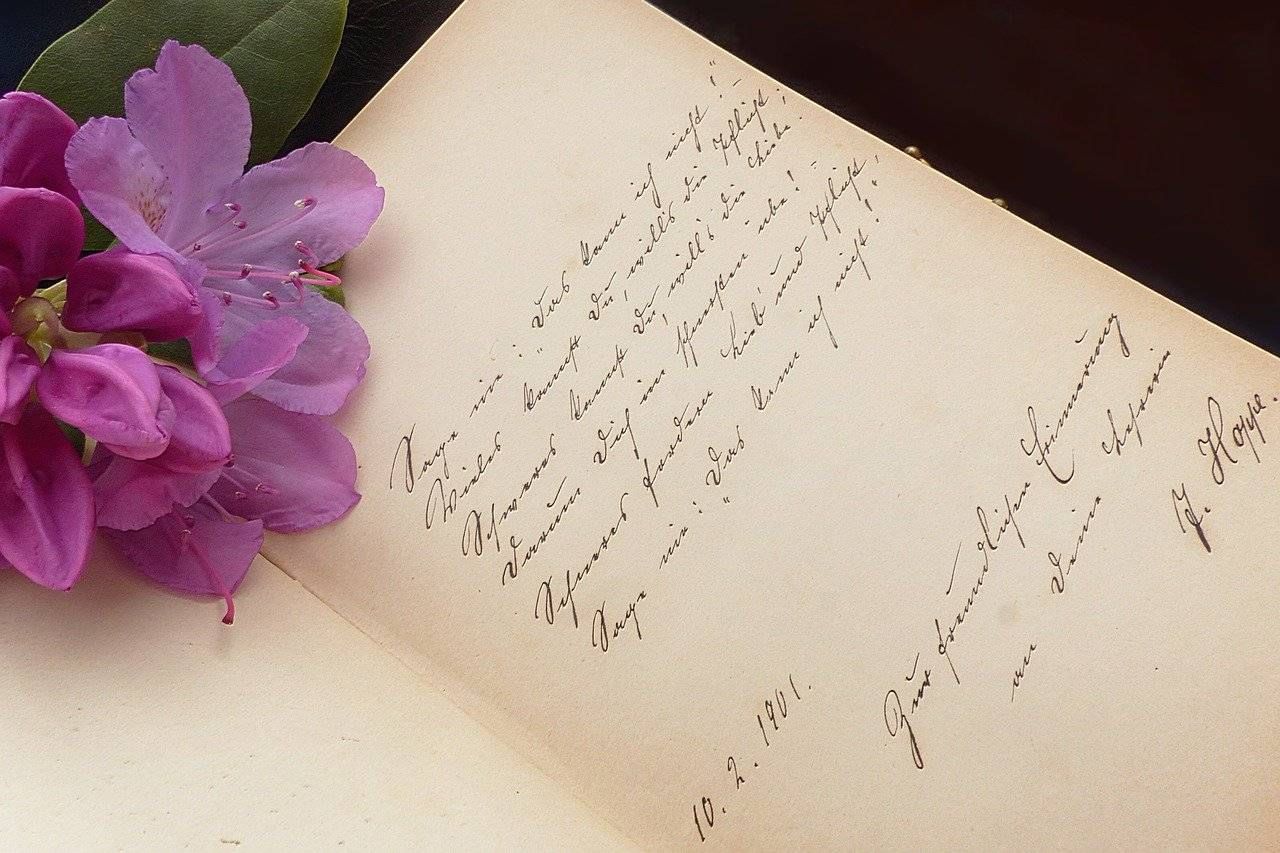 Sage nie: "Das kann ich nicht!"
Vieles kannst Du, will's die Pflicht;
Schweres kannst Du, will's die Liebe.
Darum Dich im Schwersten übe!
Schweres fordern Lieb' und Pflicht,
Sage nie: "Das kann ich nicht!"
Zur freundlichen Erinnerung
an Deine Lehrerin
J. Hoppe.
10. 2. 1901.